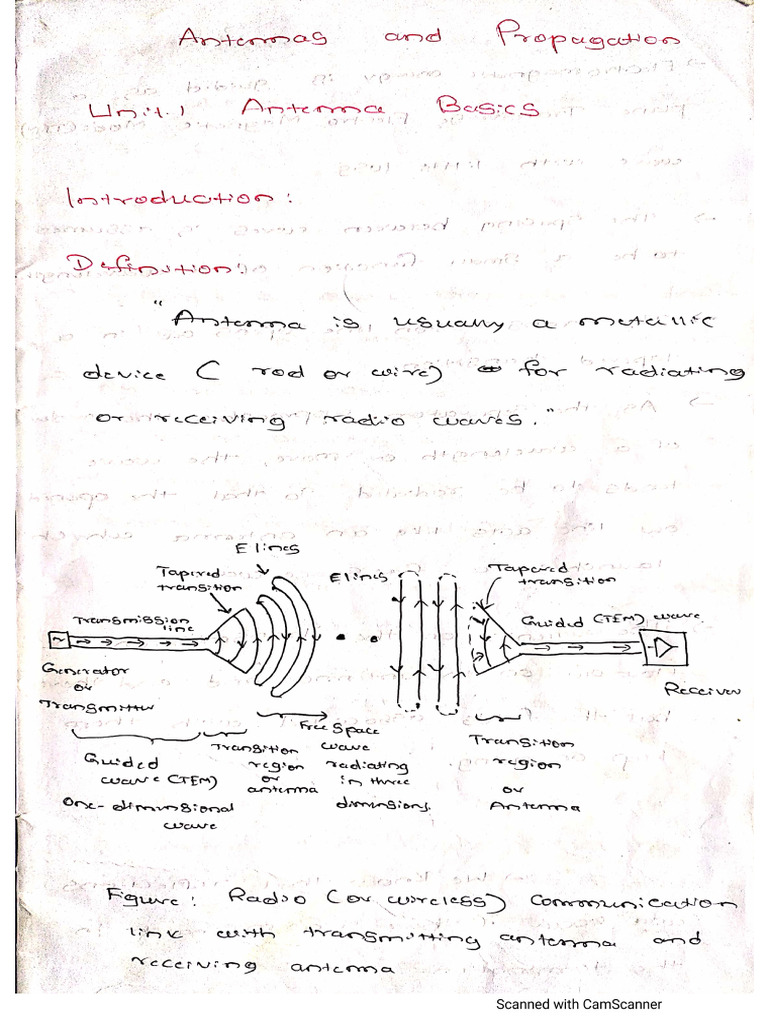 Antennas and Propagation
Unit.1 Antenna Basics
Introduction:
Definition:
"Antenna is usually a metallic
device ( rod or wire) for radiating
or receiving radio waves."
E lines
Tapered
transition
E lines
Tapered
transition
Transmission
line
Guided (TEM) wave
Generator
or
Transmitter
Receiver
Guided
wave (TEM)
One-dimensional
wave
Transition
region
or
antenna
Free Space
wave
radiating
in three
dimensions.
Transition
region
or
Antenna
Figure: Radio (or wireless) communication
link with transmitting antenna and
receiving antenna
Scanned with CamScanner